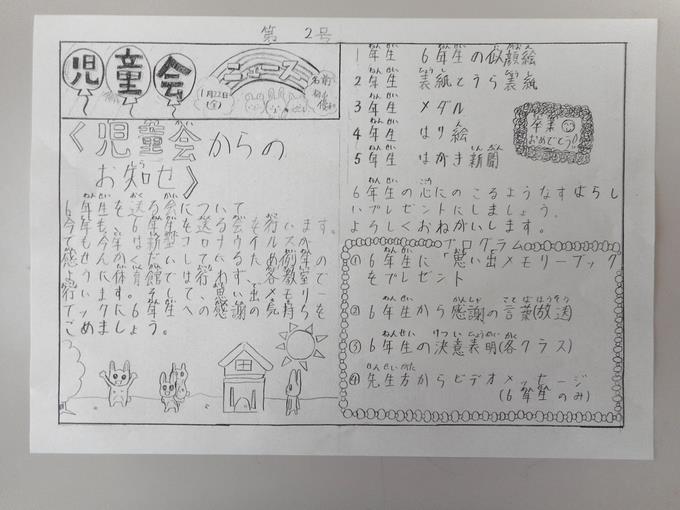 第 2号
児童会
ニュース
1月22日(金)
名前
《児童会からの
お知せ》
6年生を送る会について
今年も6年生を送る会を行います。
ように体育館では行わず、各教室で
行います。そして、思い出メモリー
ブックに6年生への感謝の気持ちを
こめましょう。
1年生 6年生の似顔絵
2年生 表紙とうら表紙
3年生 メダル
4年生 はり絵
5年生 はがき新聞
卒業
おめでとう!!
6年生の心にのこるようなすばらし
いプレゼントにしましょう。
よろしくおねがいします。
プログラム
① 6年生に「思い出メモリーブック
をプレゼント
② 6年生から感謝の言葉(放送)
③ 6年生の決意表明(各クラス)
④ 先生方からビデオメッセージ
(6年生のみ)